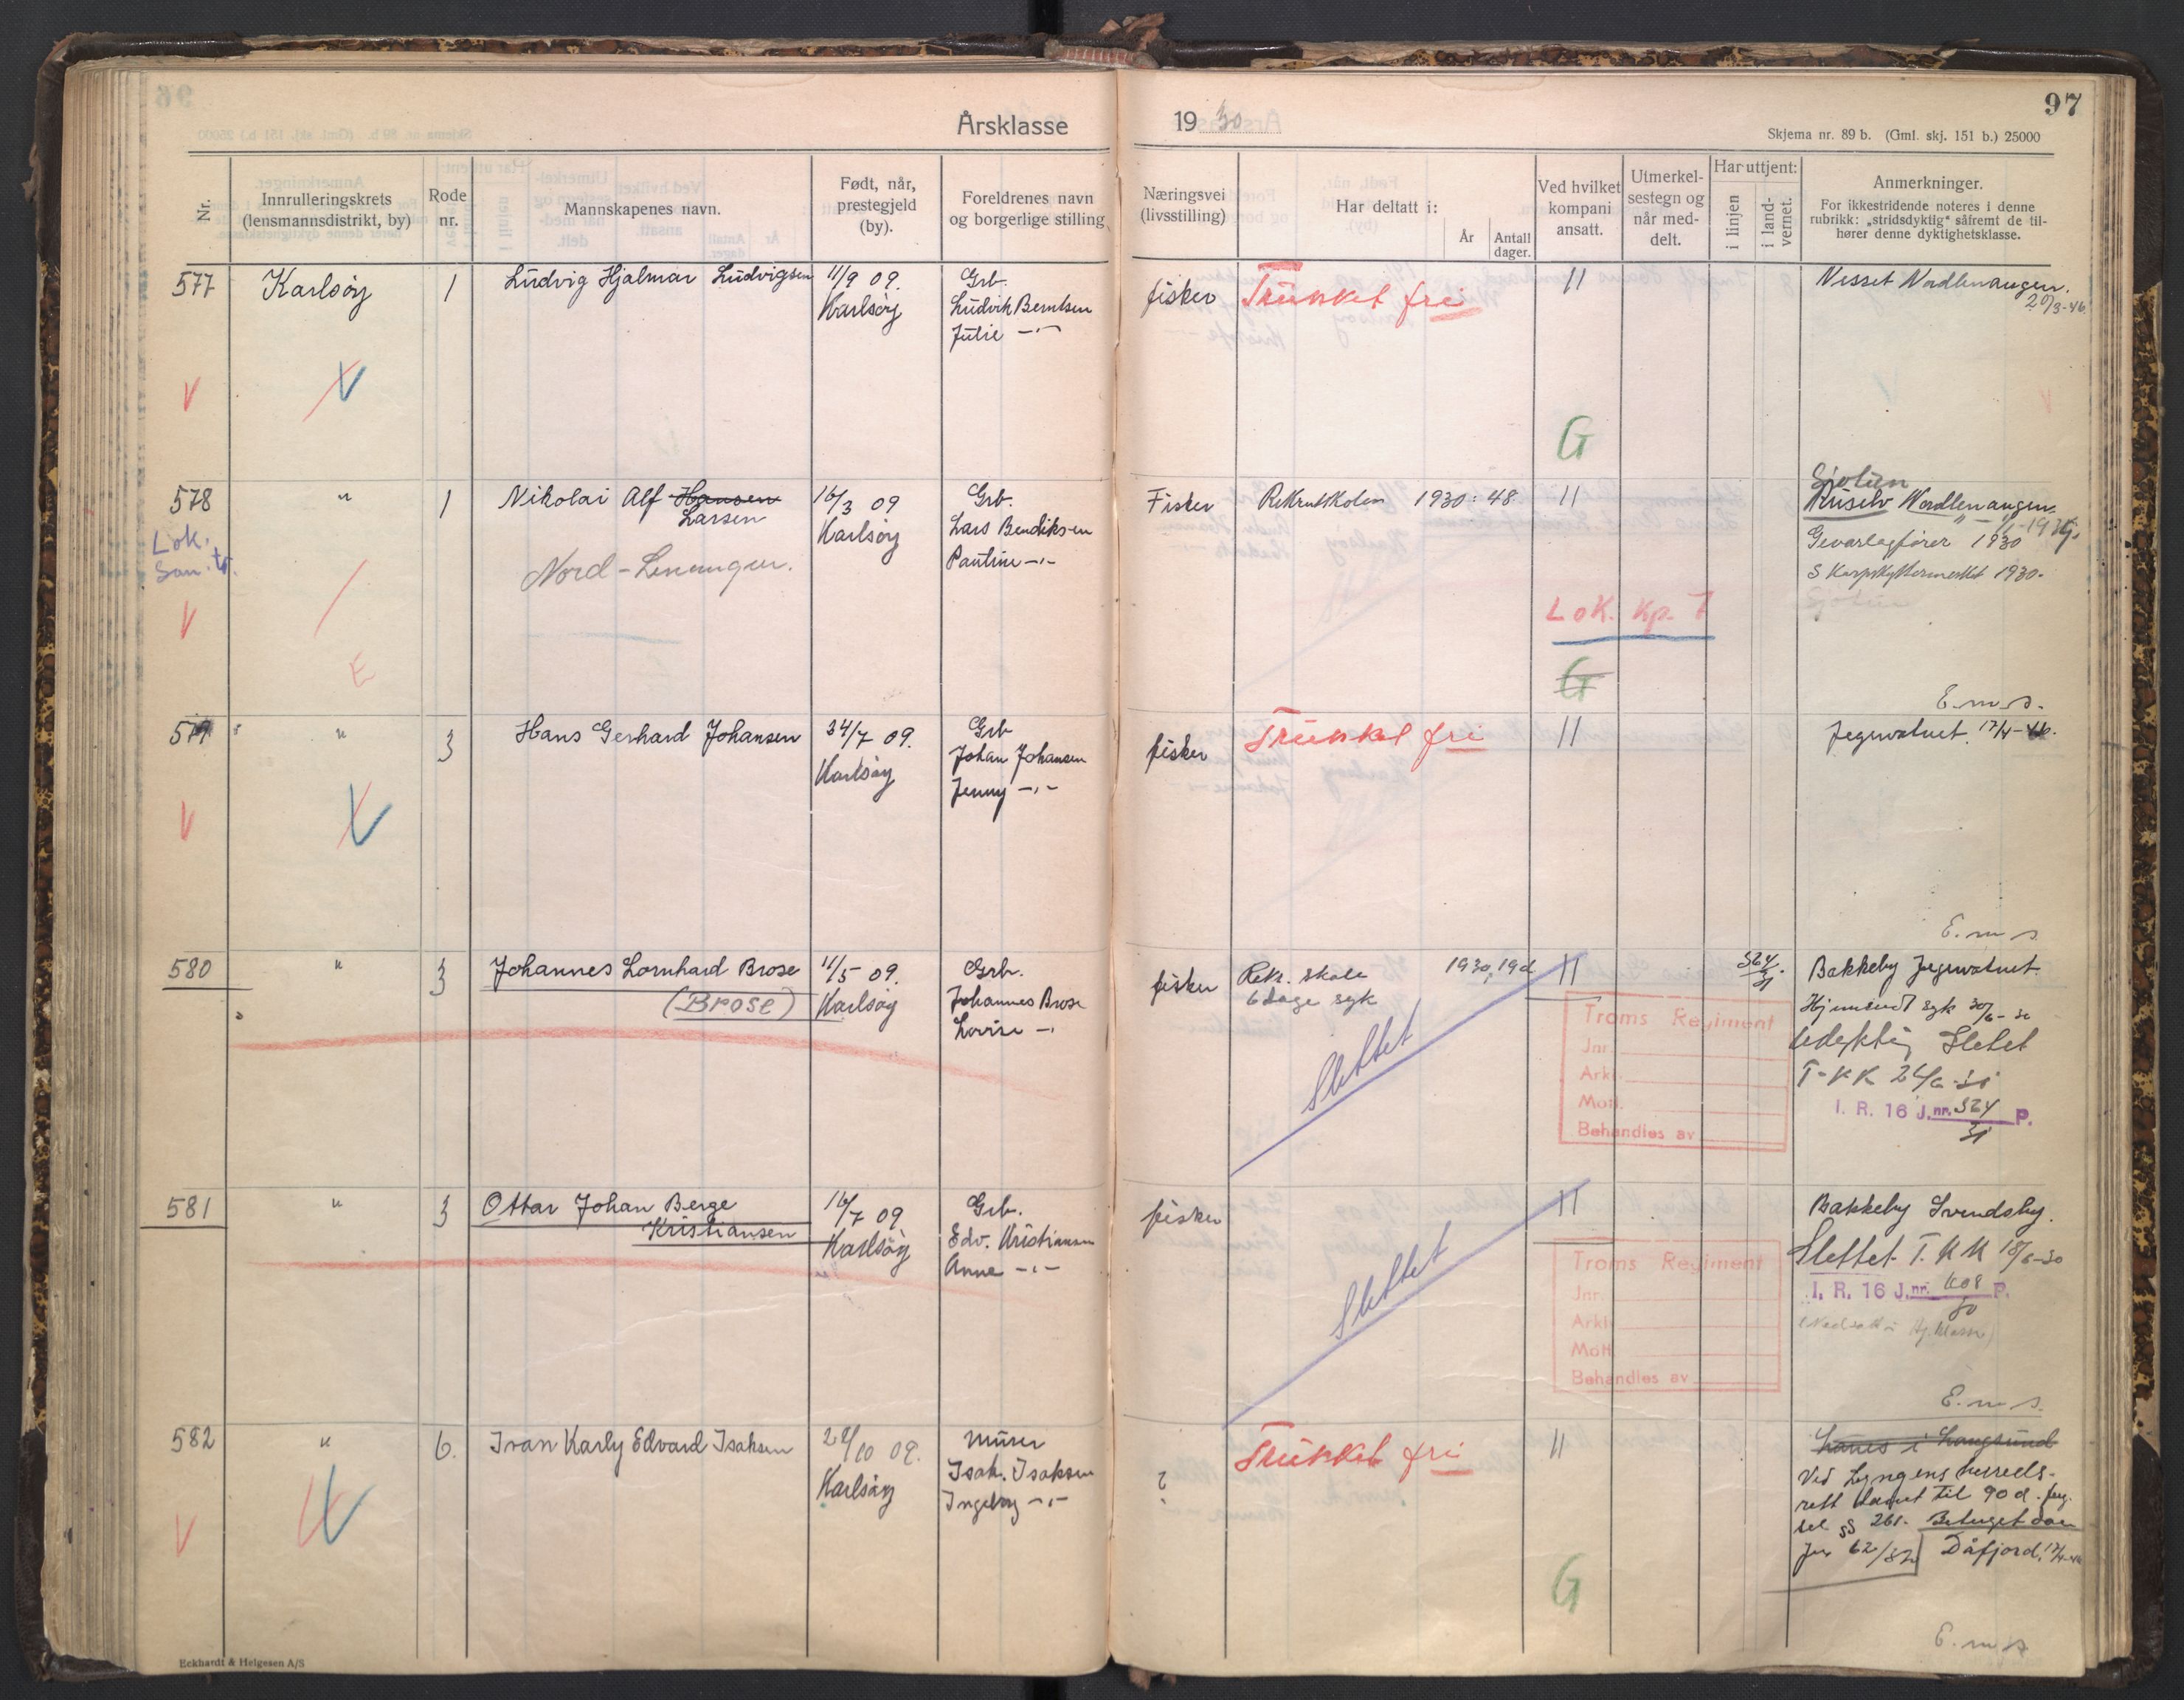 97
Årsklasse 1930
Skjema nr. 89 b. (Gml. skj. 151 b.) 25000
Nr.
Innrulleringskrets
(lensmannsdistrikt, by)
Rode
nr.
Mannskapenes navn.
Født, når,
prestegjeld
(by).
Foreldrenes navn
og borgerlige stilling
Næringsvei
(livsstilling)
Har deltatt i:
År
Antall
dager.
Ved hvilket
kompani
ansatt.
Utmerkel-
sestegn og
når med-
delt.
Har uttjent:
i linjen
i land-
vernet.
Anmerkninger.
For ikkestridende noteres i denne
rubrikk: „stridsdyktig“ såfremt de til-
hører denne dyktighetsklasse.
577
Karlsöy
1
Ludvig Hjalmar Ludvigsen
11/9 09.
Karlsöy
Grb.
Ludvik Berntsen
Julie -"-
fisker
Trunket fri
11
Nesset Nordlenangen.
20/3-46
V
V
G
578
"
1
Nikolai Alf Hansen
Larsen
16/3 09
Karlsöy
Grb.
Lars Bendiksen
Pauline -"-
Fisker
Rekrutskolen 1930: 48.
11
Sjotun
Nordlenangen.
Gevarlagfører 1930
S Karpskyttermerket 1930.
Lok.
San. tr.
Nord-Lenangen.
V
E
Lok. Kp. 7
G
E.m.s.
579
"
3
Hans Gerhard Johansen
24/7 09.
Karlsöy
Grb
Johan Johansen
Jenny -"-
fisker
Trunket fri
11
Jegervatnet. 17/4-46.
V
V
E.m.s.
580
"
3
Johannes Lornhard Brose
(Brose)
11/5 09.
Karlsöy
Grb.
Johannes Brose
Lovise -"
fisker
Rek. skole 1930, 19d
6 dage syk
11
524/31
Bakkeby Jegervatnet.
Hjemsendt syk 30/6-30
Udyktig Slettet
T-KK 26/6-31
I. R. 16 J.nr. 524 P.
31
Slettet
Troms Regiment
Jnr.
Arkiv
Mott.
Behandles av
581
"
3
Ottar Johan Berge
Kristiansen
16/7 09
Karlsöy
Grb.
Edv. Kristiansen
Anne -"-
fisker
11
Bakkeby Svendsby.
Slettet T. K K 18/6-30
I. R. 16 J.nr. 608 P.
30
Slettet
Troms Regiment
Jnr.
Arkiv
Mott
Behandles av
E.m.s.
582
"
6.
Ivan Karly Edvard Isaksen
28/10 09.
Karlsöy
murer
Isak. Isaksen
Ingeborg -"-
?
Trunket fri
11
Hanes i Langsund
Ved Lyngens herreds-
rett dømt til 90 d. feng-
sel §§ 261. Betinget dom
Jnr 62/32
Dåfjord. 17/4-46
V
V
G
E.m.s
Eckhardt & Helgesen A/S